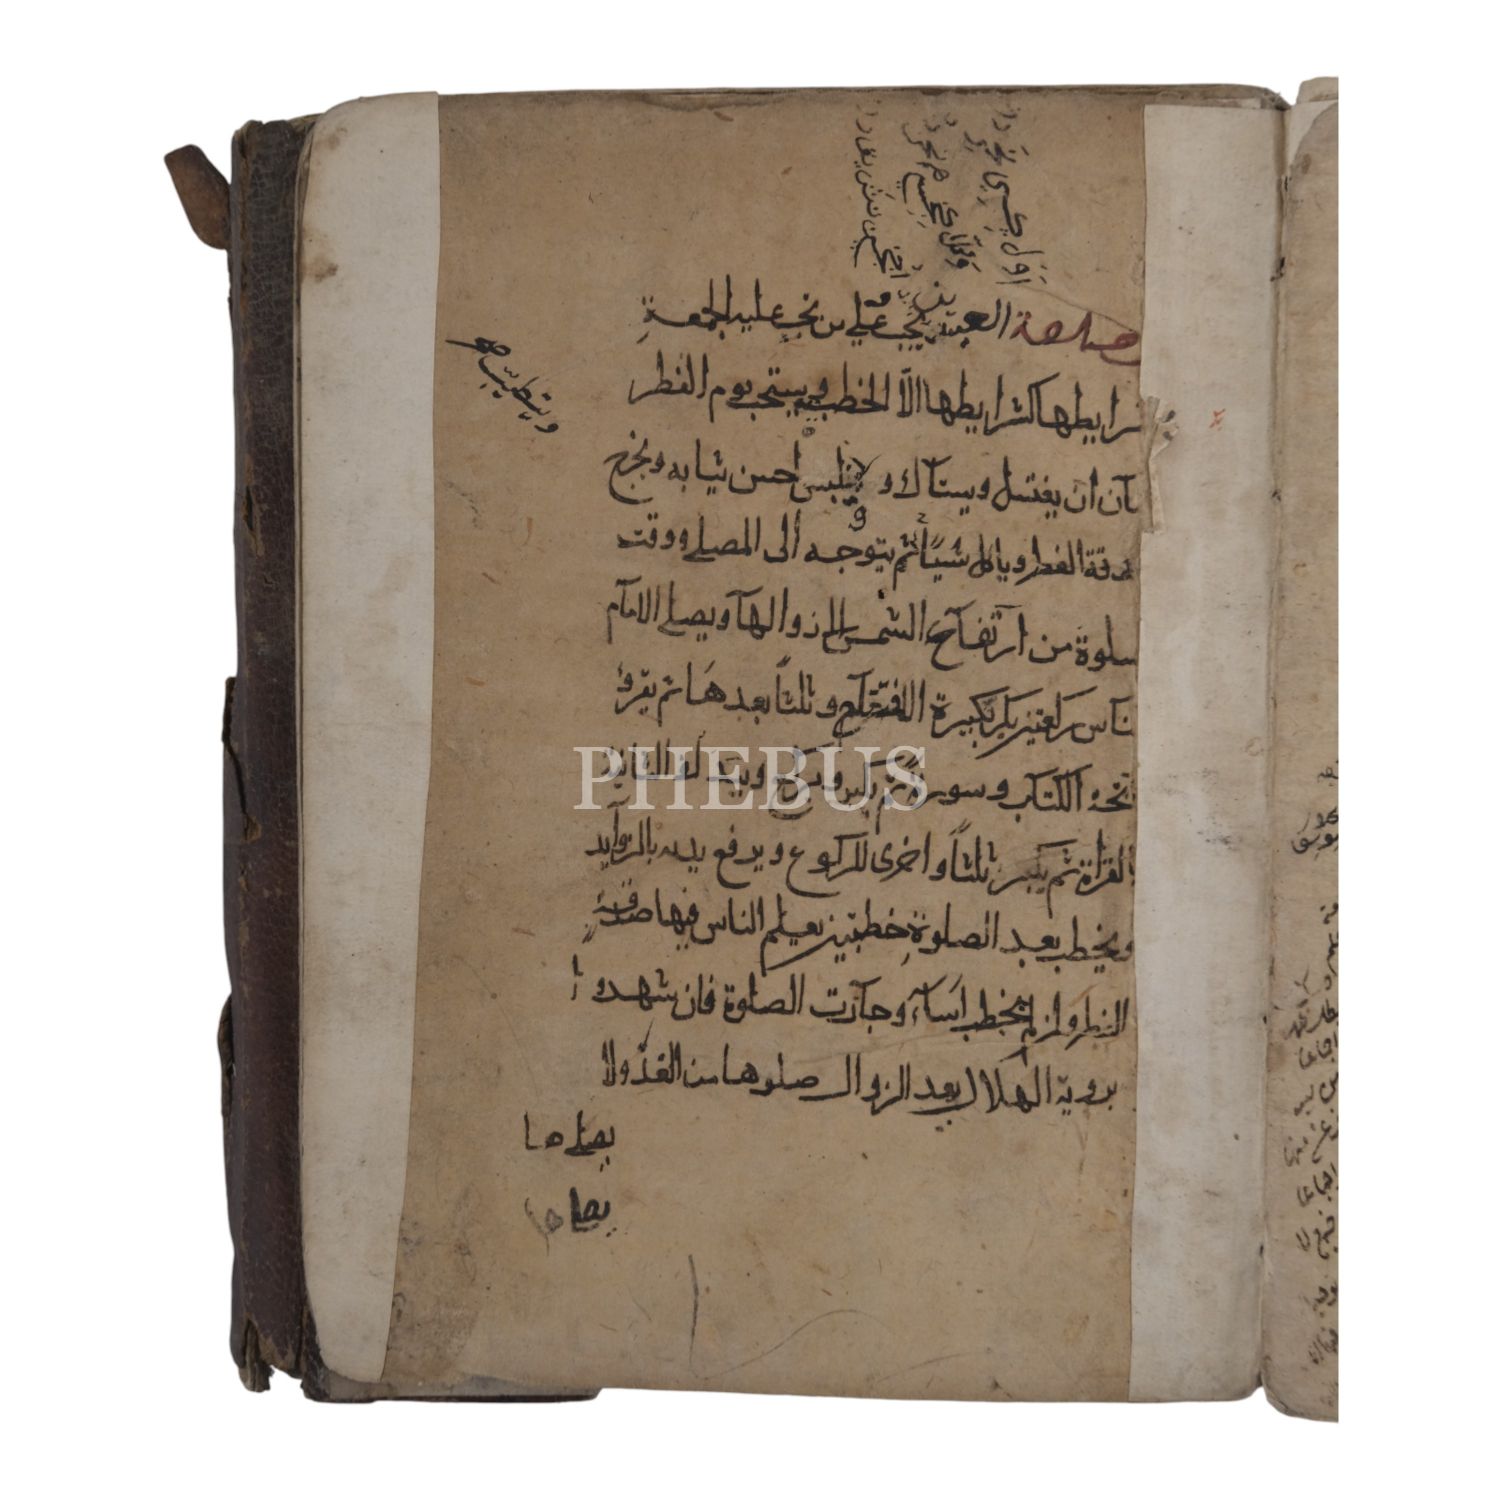 صلوة العيدين تجب على من تجب عليه الجمعة
شرايطها كشرايطها الّا الخطبة ويستحب يوم الفطر
ان يغتسل ويستاك و يلبس احسن ثيابه ويخرج
صدقة الفطر وياكل شيئاً ثم يتوجه الى المصلى ووقت
صلوة من ارتفاع الشمس الى زوالها ويصلى الامام
بالناس ركعتين يكبر تكبيرة الافتتاح وثلثاً بعدها ثم يقرؤ
فاتحة الكتاب وسورة ثم يكبر ويركع ويبدأ فى الثانية
بالقراة ثم يكبر ثلثاً واخرى للركوع ويرفع يديه بالزوآيد
ويخطب بعد الصلوة خطبتين يعلم الناس فيها صدقة
الفطر وان لم يخطب اسآء وجازت الصلوة فان شهدوا
بروية الهلال بعد الزوال صلوها من الغد ولا
يصلى ها
يصلى ها
ويتطيب صح
اول
PHEBUS